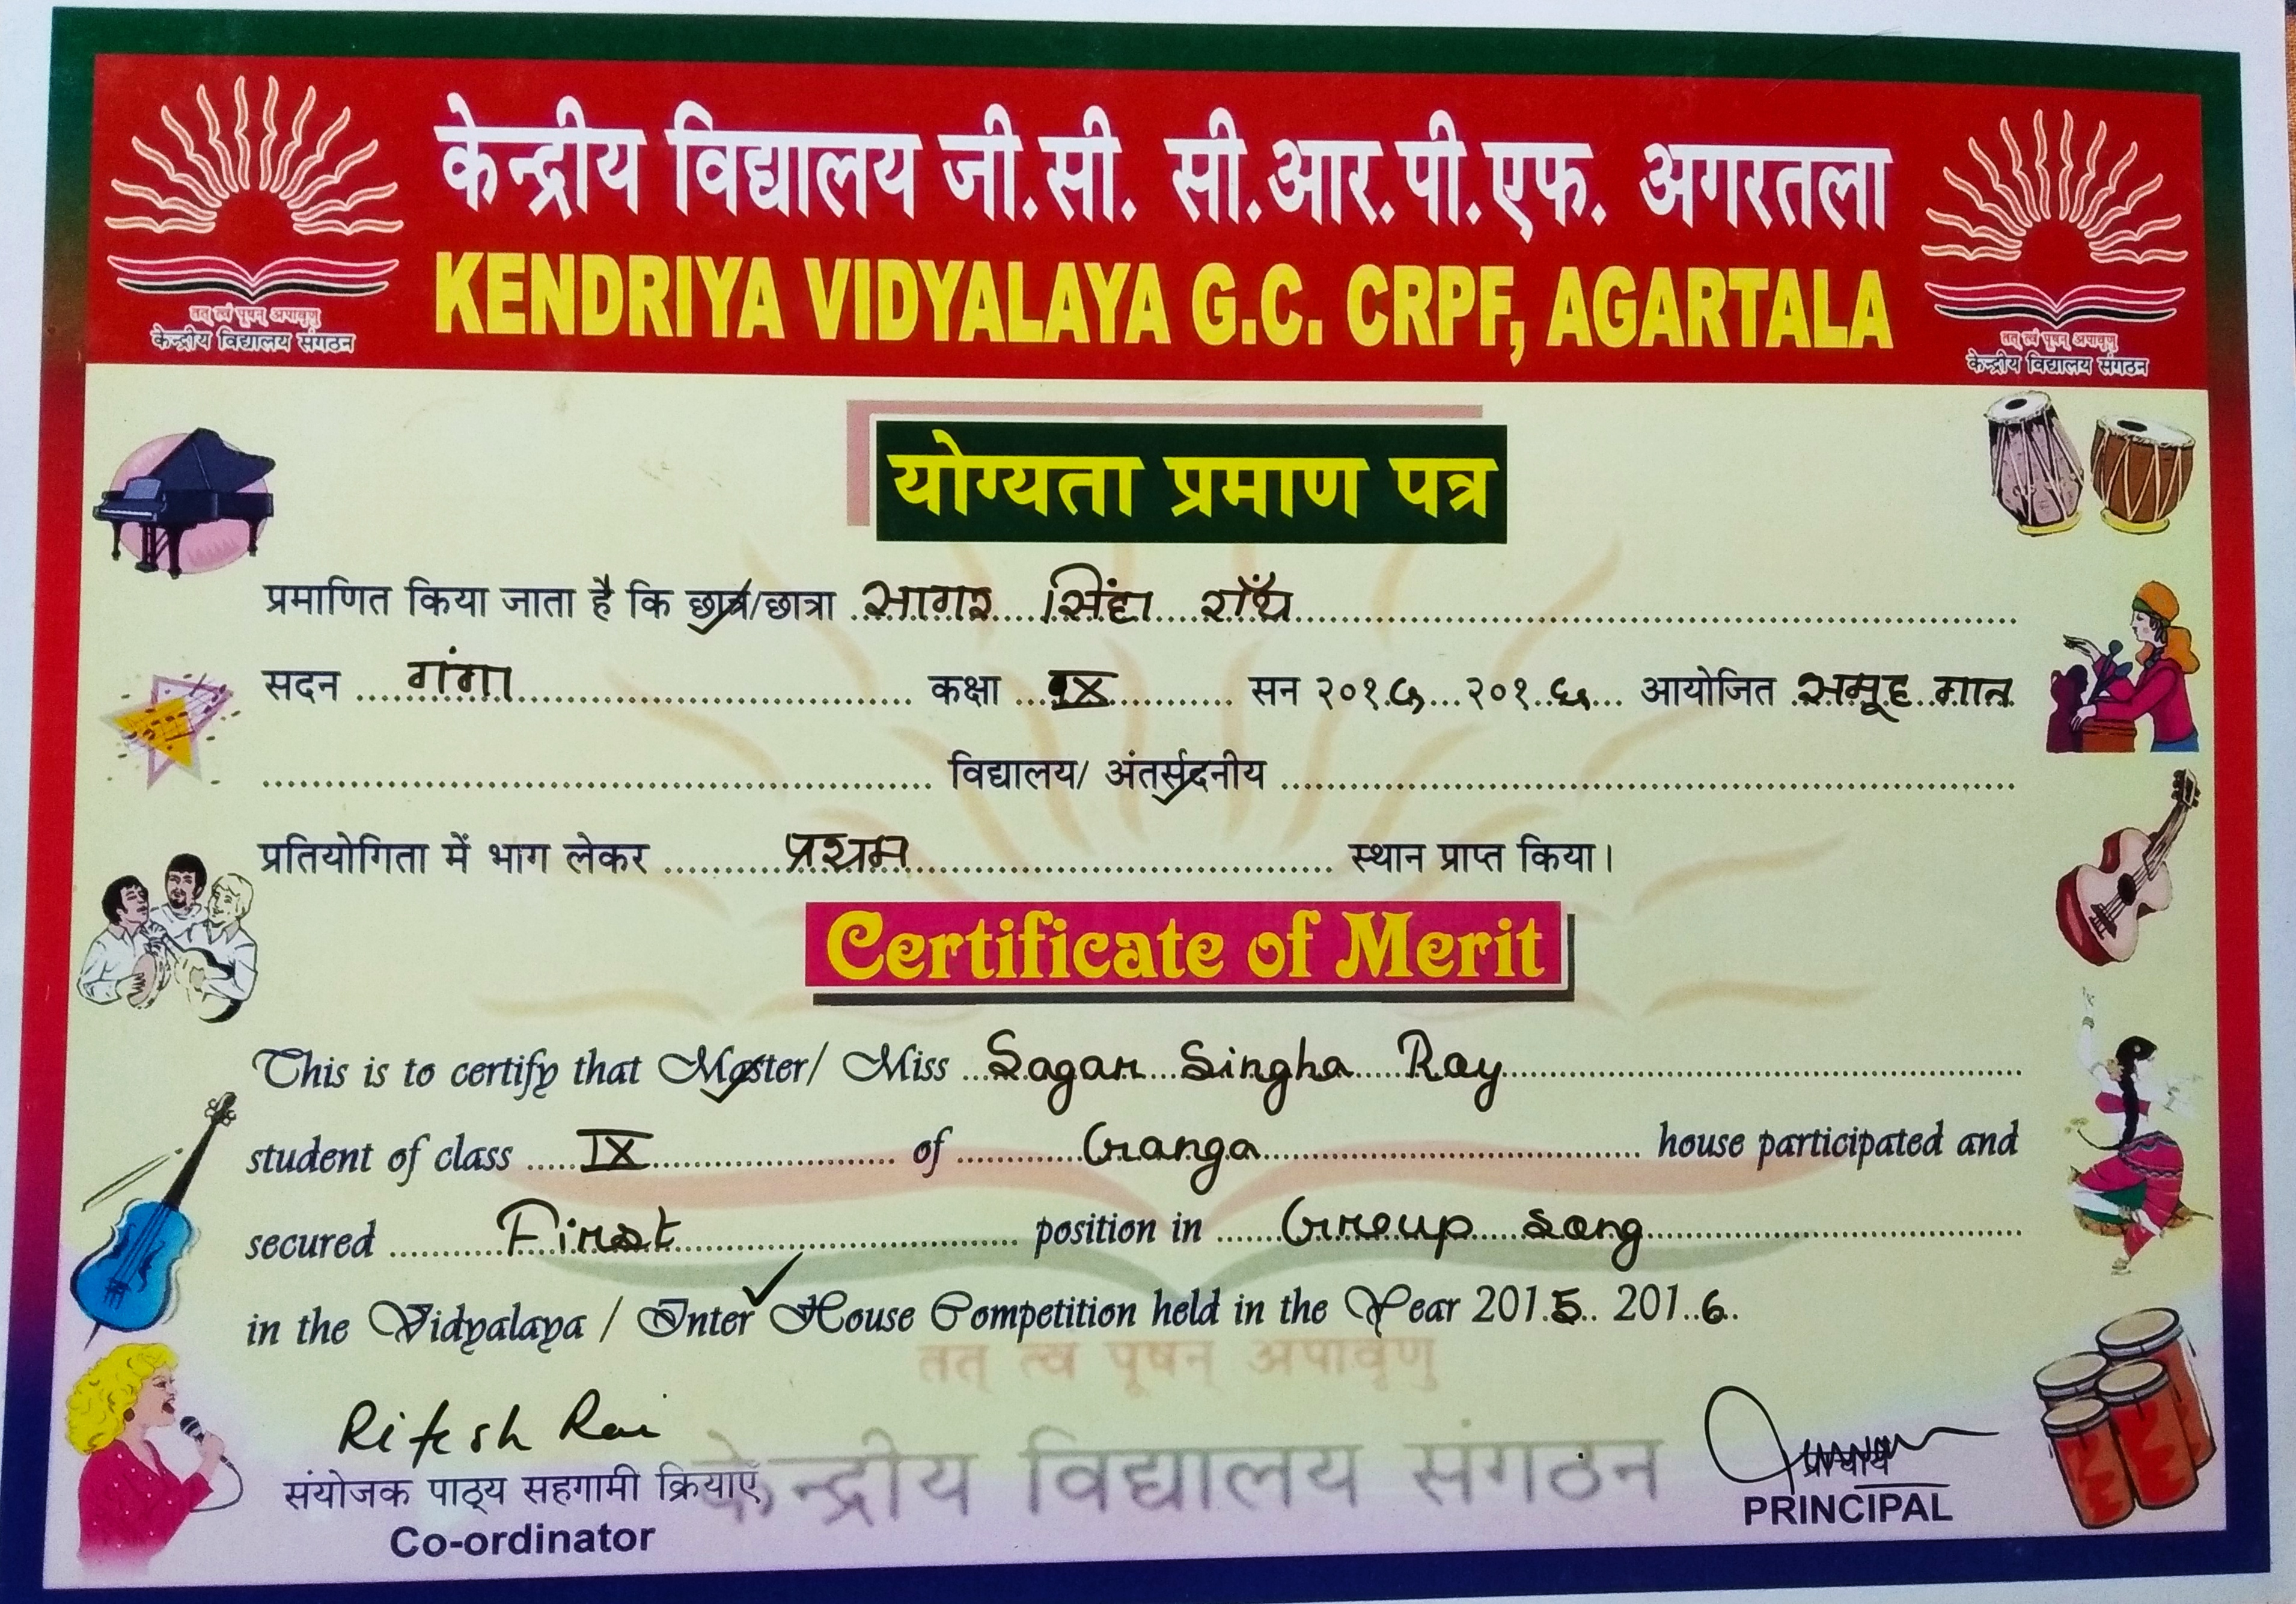 केन्द्रीय विद्यालय जी.सी. सी.आर.पी.एफ. अगरतला
KENDRIYA VIDYALAYA G.C. CRPF, AGARTALA
तत् त्वं पूषन् अपावृणु
केन्द्रीय विद्यालय संगठन
तत् त्वं पूषन् अपावृणु
केन्द्रीय विद्यालय संगठन
योग्यता प्रमाण पत्र
प्रमाणित किया जाता है कि छात्र/छात्रा सागर सिंहा रॉय
सदन गंगा कक्षा IX सन २०१५ २०१६ आयोजित समूह गान
विद्यालय/ अंतर्सदनीय
प्रतियोगिता में भाग लेकर प्रथम स्थान प्राप्त किया।
Certificate of Merit
This is to certify that Master/ Miss Sagar Singha Ray
student of class IX of Ganga house participated and
secured First position in Group song
in the Vidyalaya / Inter House Competition held in the Year 2015 2016
तत् त्वं पूषन् अपावृणु
केन्द्रीय विद्यालय संगठन
Ritesh Rai
संयोजक पाठ्य सहगामी क्रियाएं
Co-ordinator
प्राचार्य
PRINCIPAL